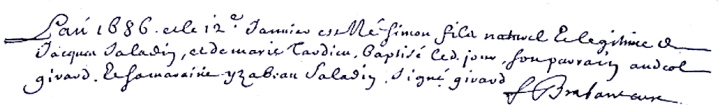 L'an 1686. et le 12e Janvier est Né simon fils naturel et legitime de
Jacques Saladin, et de marie Tardieu, baptisé led. jour, son parrain
girard. Et sa maraine yzabeau Saladin. Signé girard